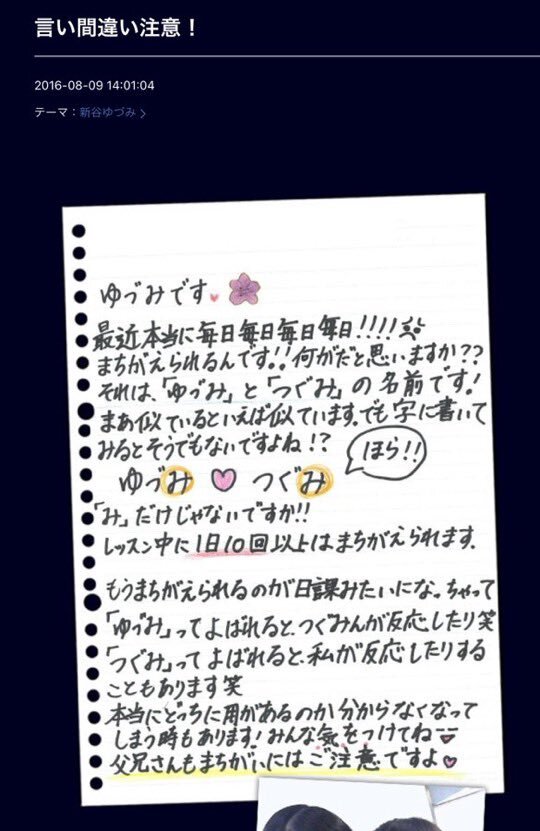 言い間違い注意！
2016-08-09 14:01:04
テーマ：新谷ゆづみ
ゆづみです
最近本当に毎日毎日毎日毎日!!!!
まちがえられるんです!!何がだと思いますか??
それは、「ゆづみ」と「つぐみ」の名前です!
まあ似ているといえば似ています。でも字に書いて
みるとそうでもないですよね!?
ほら!!
ゆづみ つぐみ
「み」だけじゃないですか!!
レッスン中に1日10回以上はまちがえられます。
もうまちがえられるのが日課みたいになっちゃって
「ゆづみ」ってよばれると、つぐみんが反応したり笑
「つぐみ」ってよばれると、私が反応したりする
こともあります笑
本当にどっちに用があるのか分からなくなって
しまう時もあります!みんな気をつけてね
父兄さんもまちがいにはご注意ですよ